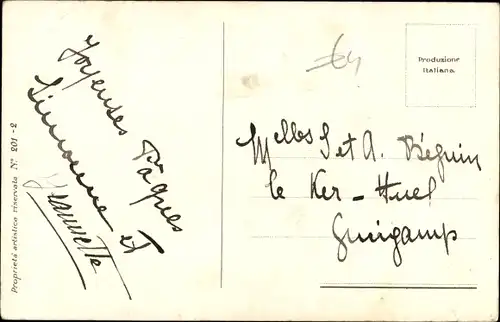 Joyeuses Pâques
Simone et
Jeannette
Proprietà artistica riservata N° 201-2
Produzione
Italiana
Melles S et A. Béguin
le Ker-Huel
Guingamp